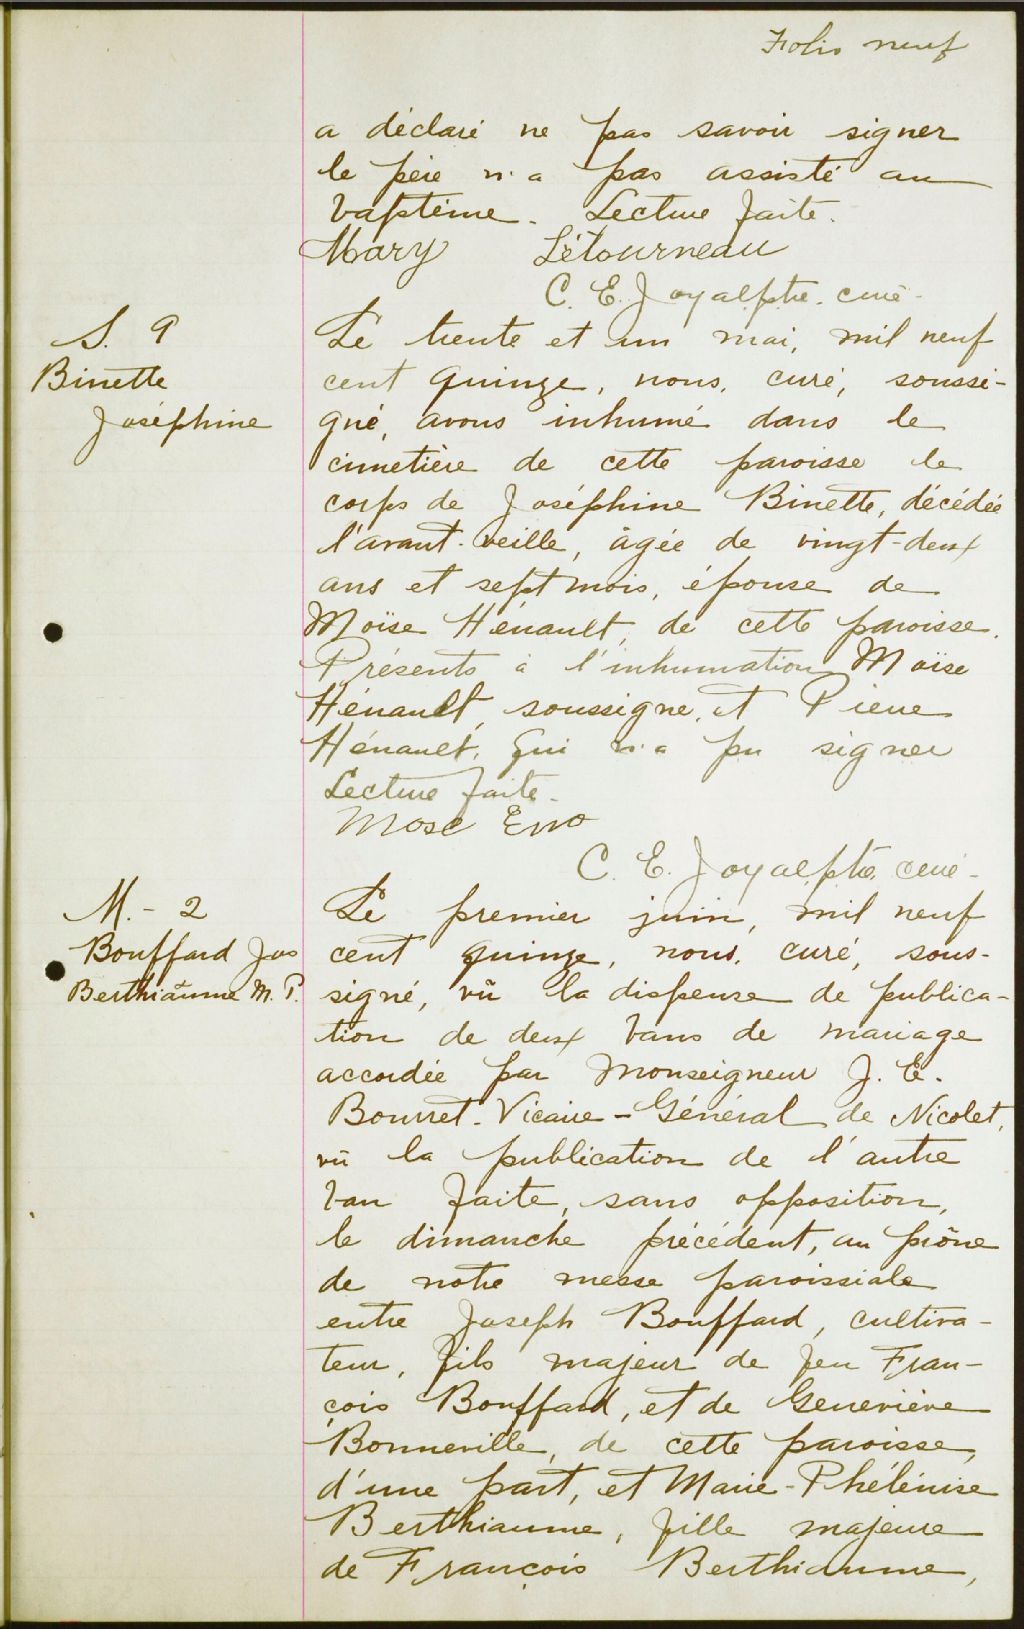 Folio neuf
a déclaré ne pas savoir signer
le père n'a pas assisté au
baptême. Lecture faite.
Mary Létourneau
C. E. Joyal, ptre. curé.
S. 9
Binette
Joséphine
Le trente et un mai, mil neuf
cent quinze, nous, curé, soussi-
gné, avons inhumé dans le
cimetière de cette paroisse le
corps de Joséphine Binette, décédée
l'avant-veille, âgée de vingt-deux
ans et sept mois, épouse de
Moïse Hénault, de cette paroisse.
Présents à l'inhumation Moïse
Hénault, soussigné, et Pierre
Hénault, qui n'a pu signer
Lecture faite.
Mose Eno
C. E. Joyal, ptre. curé.
M. - 2
Bouffard Jos
Berthiaume M. P.
Le premier juin, mil neuf
cent quinze, nous, curé, sous-
signé, vû la dispense de publica-
tion de deux bans de mariage
accordée par Monseigneur J. E.
Bourret. Vicaire-Général de Nicolet,
vû la publication de l'autre
ban faite, sans opposition,
le dimanche précédent, au prône
de notre messe paroissiale
entre Joseph Bouffard, cultiva-
teur, fils majeur de feu Fran-
çois Bouffard, et de Geneviève
Bonneville, de cette paroisse,
d'une part, et Marie-Phélénise
Berthiaume, fille majeure
de François Berthiaume,